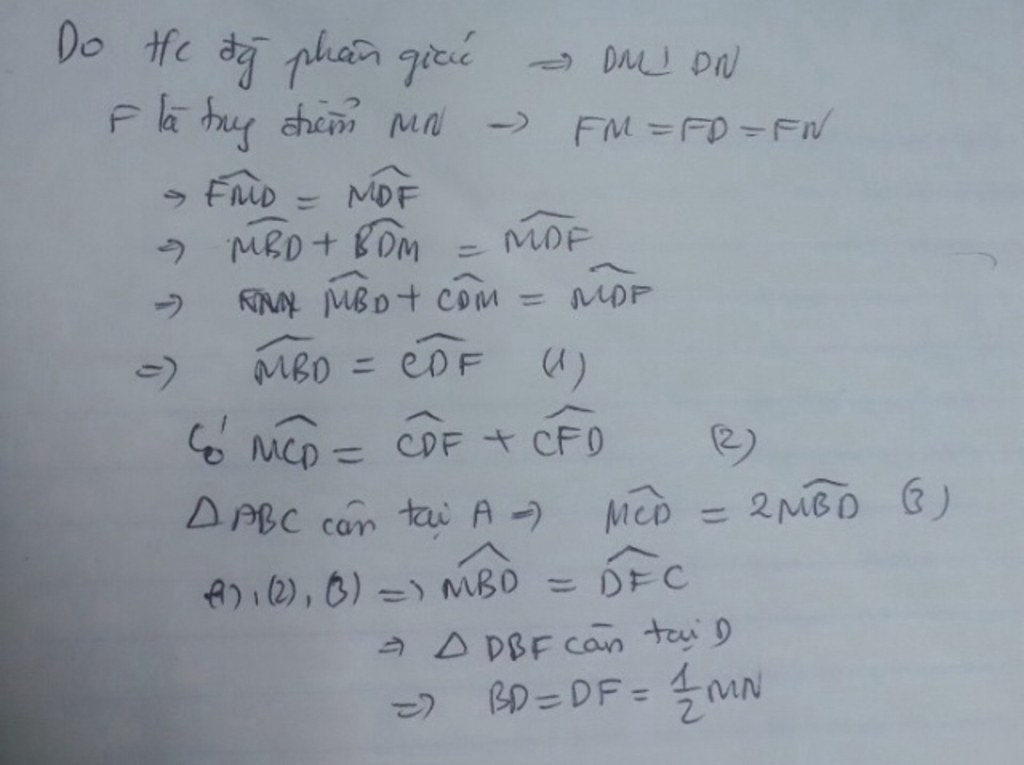 Do t/c đg̃ phân giác ⇒ DM⊥ DN
F là trug điểm MN → FM = FD = FN
→ \widehat{FMD} = \widehat{MDF}
⇒ \widehat{MBD} + \widehat{BDM} = \widehat{MDF}
⇒ \widehat{MBD} + \widehat{CDM} = \widehat{MDF}
⇒ \widehat{MBD} = \widehat{CDF} (1)
Có \widehat{MCD} = \widehat{CDF} + \widehat{CFD} (2)
Δ ABC cân tại A ⇒ \widehat{MCD} = 2\widehat{MBD} (3)
(1), (2), (3) ⇒ \widehat{MBD} = \widehat{DFC}
⇒ Δ DBF cân tại D
⇒ BD = DF = \frac{1}{2} MN